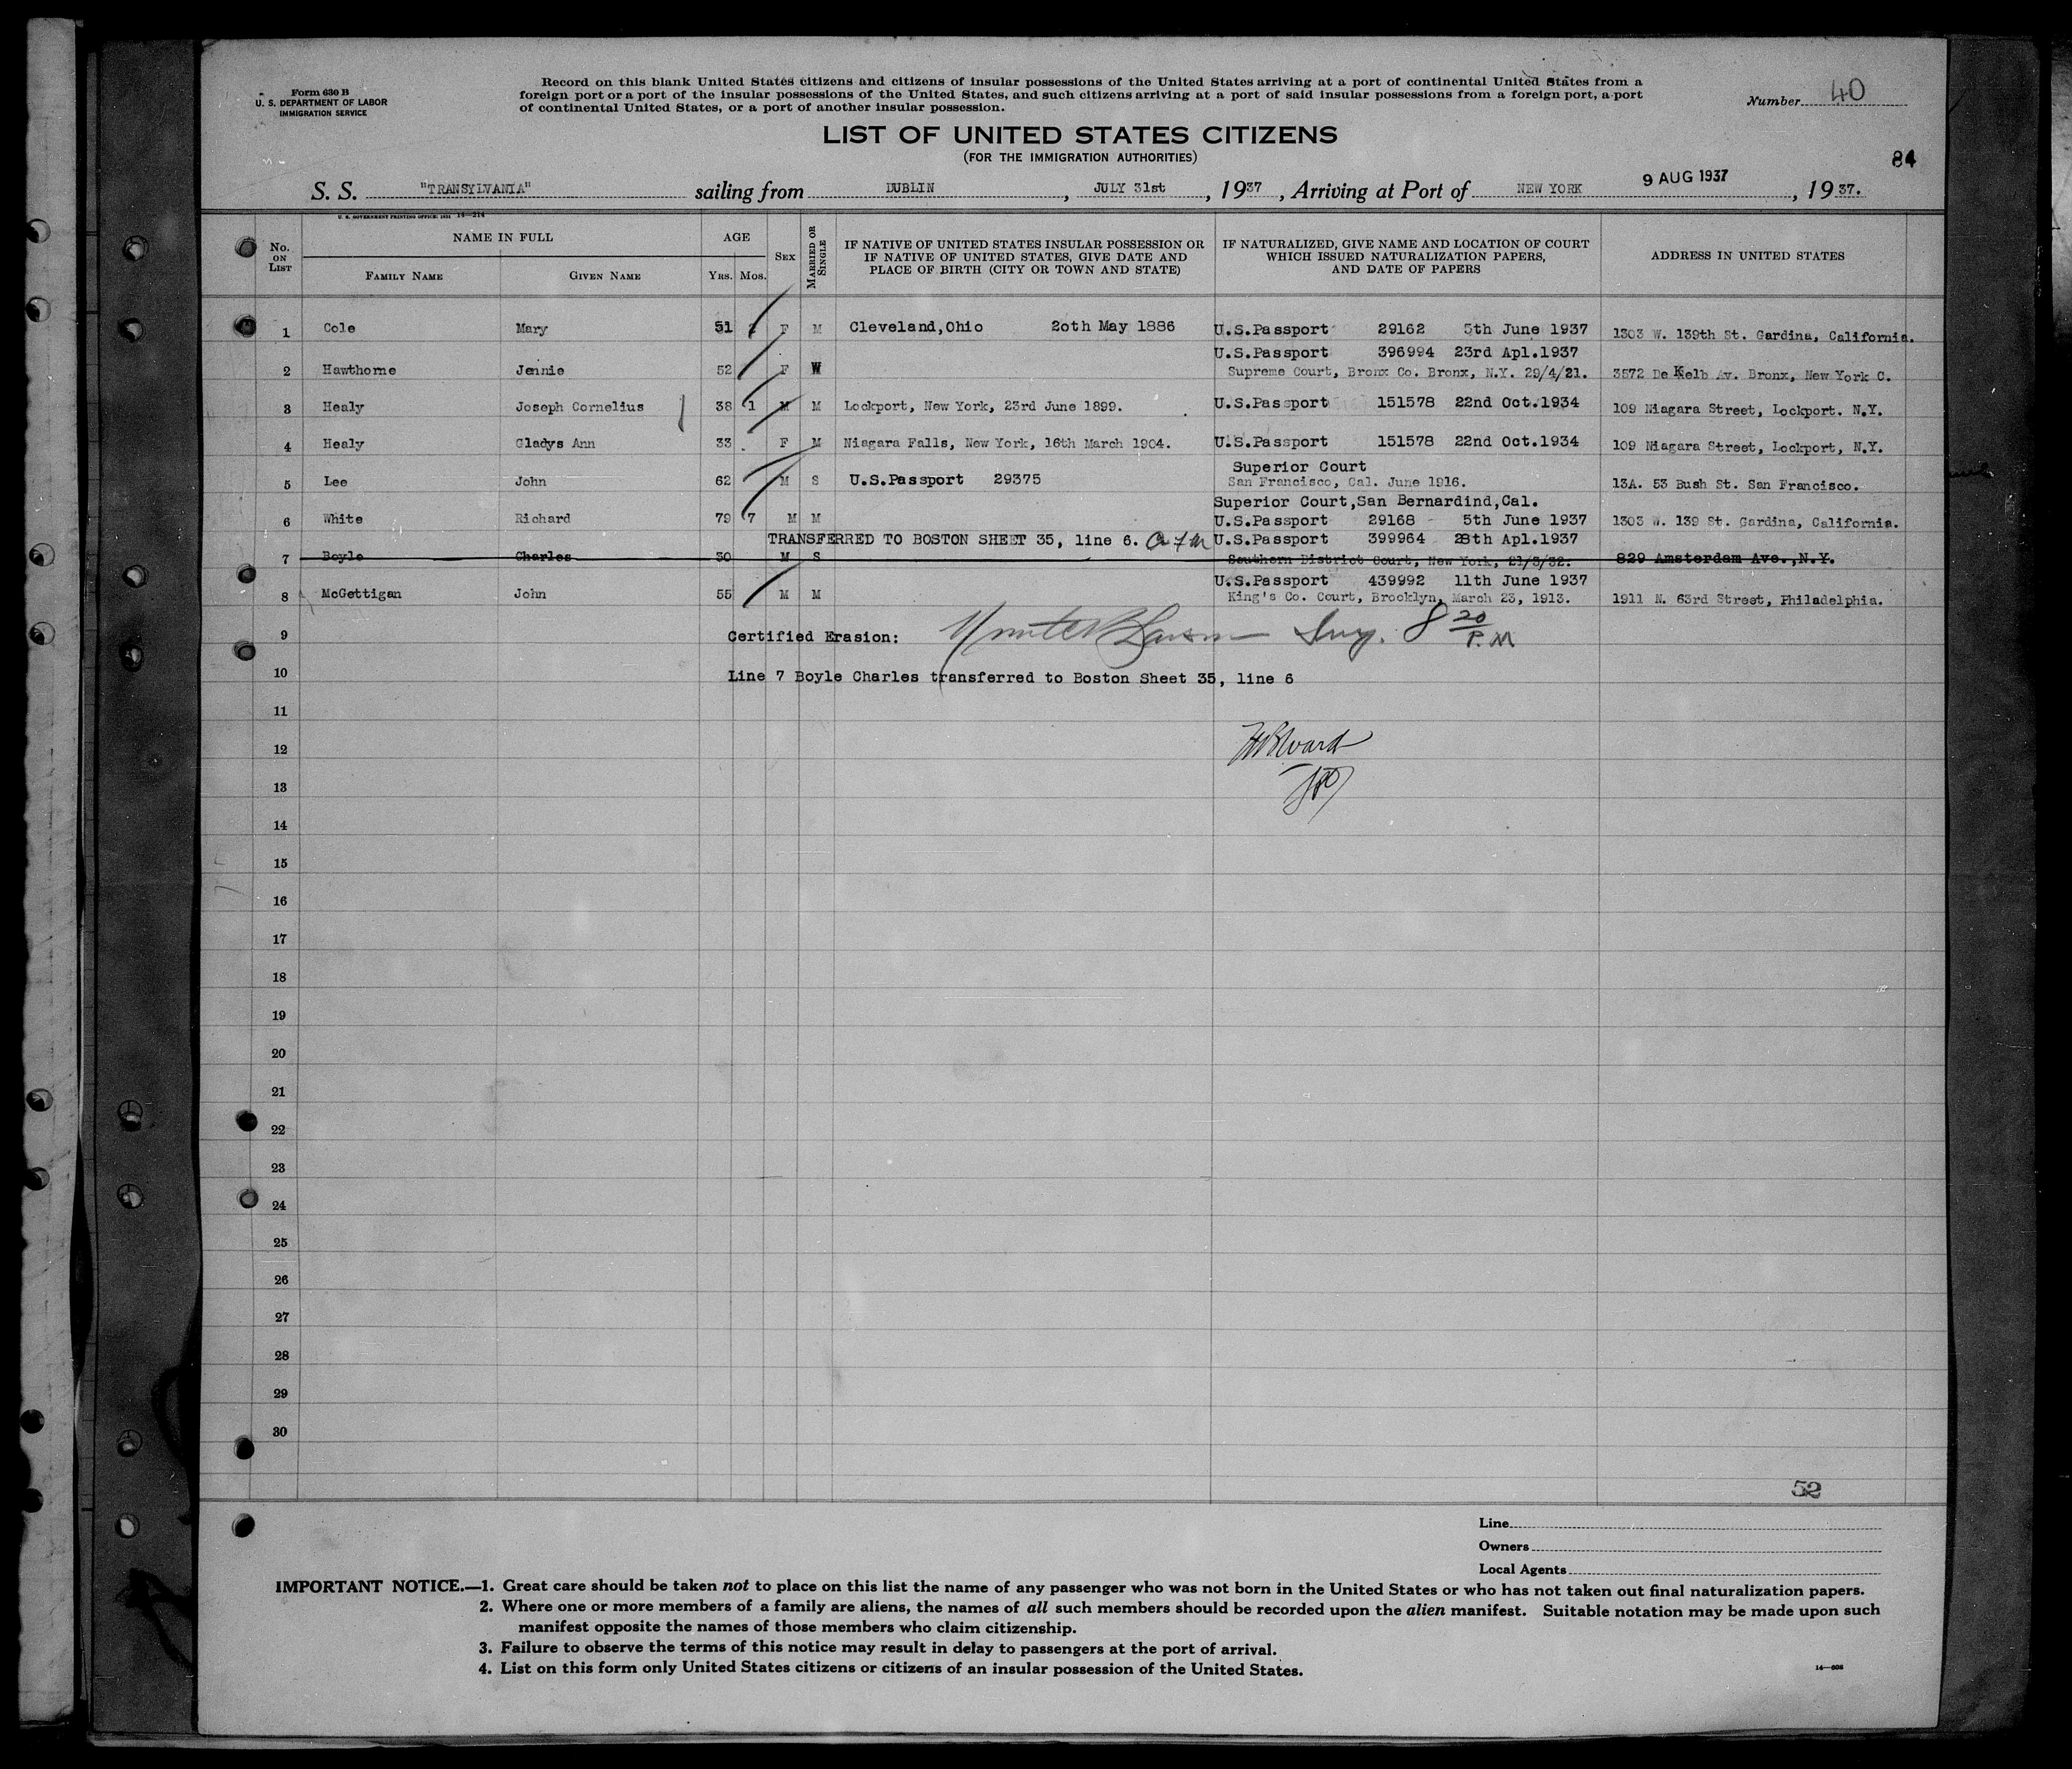 Form 630 B
U. S. DEPARTMENT OF LABOR
IMMIGRATION SERVICE
Record on this blank United States citizens and citizens of insular possessions of the United States arriving at a port of continental United States from a
foreign port or a port of the insular possessions of the United States, and such citizens arriving at a port of said insular possessions from a foreign port, a port
of continental United States, or a port of another insular possession.
Number 40
LIST OF UNITED STATES CITIZENS
(FOR THE IMMIGRATION AUTHORITIES)
84
S. S. "TRANSYLVANIA" sailing from DUBLIN, JULY 31st, 1937, Arriving at Port of NEW YORK 9 AUG 1937, 1937.
U. S. GOVERNMENT PRINTING OFFICE: 1931 14—214
No. ON LIST NAME IN FULL FAMILY NAME GIVEN NAME AGE YRS. MOS. SEX MARRIED OR SINGLE IF NATIVE OF UNITED STATES INSULAR POSSESSION OR IF NATIVE OF UNITED STATES, GIVE DATE AND PLACE OF BIRTH (CITY OR TOWN AND STATE) IF NATURALIZED, GIVE NAME AND LOCATION OF COURT WHICH ISSUED NATURALIZATION PAPERS, AND DATE OF PAPERS ADDRESS IN UNITED STATES
1 Cole Mary 51 2 F M Cleveland,Ohio 2oth May 1886 U.S.Passport 29162 5th June 1937 1303 W. 139th St. Gardina, California.
U.S.Passport 396994 23rd Apl.1937
2 Hawthorne Jennie 52 F W Supreme Court, Bronx Co. Bronx, N.Y. 29/4/21. 3572 De Kelb Av. Bronx, New York C.
3 Healy Joseph Cornelius 38 1 M M Lockport, New York, 23rd June 1899. U.S.Passport 151578 22nd Oct.1934 109 Niagara Street, Lockport. N.Y.
4 Healy Gladys Ann 33 F M Niagara Falls, New York, 16th March 1904. U.S.Passport 151578 22nd Oct.1934 109 Niagara Street, Lockport, N.Y.
Superior Court
5 Lee John 62 M S U.S.Passport 29375 San Francisco, Cal. June 1916. 13A. 53 Bush St. San Francisco.
Superior Court,San Bernardind,Cal.
6 White Richard 79 7 M M U.S.Passport 29168 5th June 1937 1303 W. 139 St. Gardina, California.
TRANSFERRED TO BOSTON SHEET 35, line 6. U.S.Passport 399964 28th Apl.1937
7 Boyle Charles 30 M S Southern District Court, New York, 21/3/32. 829 Amsterdam Ave.,N.Y.
U.S.Passport 439992 11th June 1937
8 McGettigan John 55 M M King's Co. Court, Brooklyn, March 23, 1913. 1911 N. 63rd Street, Philadelphia.
9 Certified Erasion: 8 20 P.M
10 Line 7 Boyle Charles transferred to Boston Sheet 35, line 6
11
12
13
14
15
16
17
18
19
20
21
22
23
24
25
26
27
28
29
30
52
Line
Owners
Local Agents
IMPORTANT NOTICE.—1. Great care should be taken not to place on this list the name of any passenger who was not born in the United States or who has not taken out final naturalization papers.
2. Where one or more members of a family are aliens, the names of all such members should be recorded upon the alien manifest. Suitable notation may be made upon such
manifest opposite the names of those members who claim citizenship.
3. Failure to observe the terms of this notice may result in delay to passengers at the port of arrival.
4. List on this form only United States citizens or citizens of an insular possession of the United States.
14—608